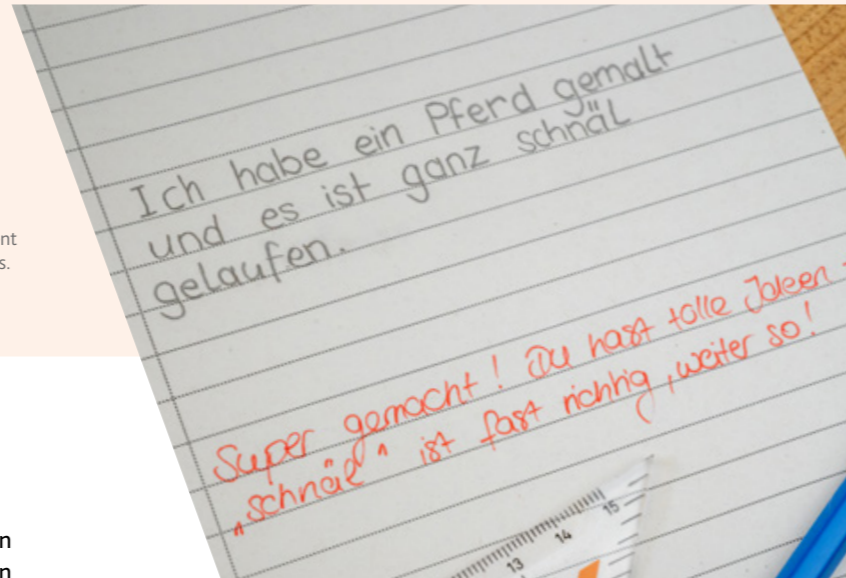 Ich habe ein Pferd gemalt
und es ist ganz schnäl
gelaufen.
Super gemacht! Du hast tolle Ideen -
"schnäl" ist fast richtig, weiter so!
nt
s.
n
n
13 14 15